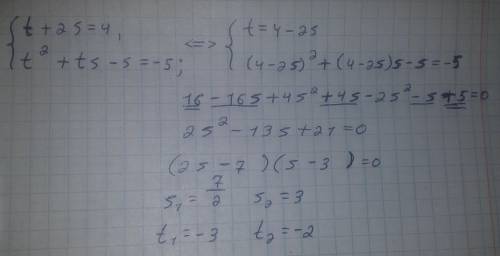 { t + 2s = 4, <=> { t = 4 - 2s
t² + ts - s = -5; (4 - 2s)² + (4 - 2s)s - s = -5
16 - 16s + 4s² + 4s - 2s² - s + 5 = 0
2s² - 13s + 21 = 0
(2s - 7)(s - 3) = 0
s₁ = 7/2 s₂ = 3
t₁ = -3 t₂ = -2